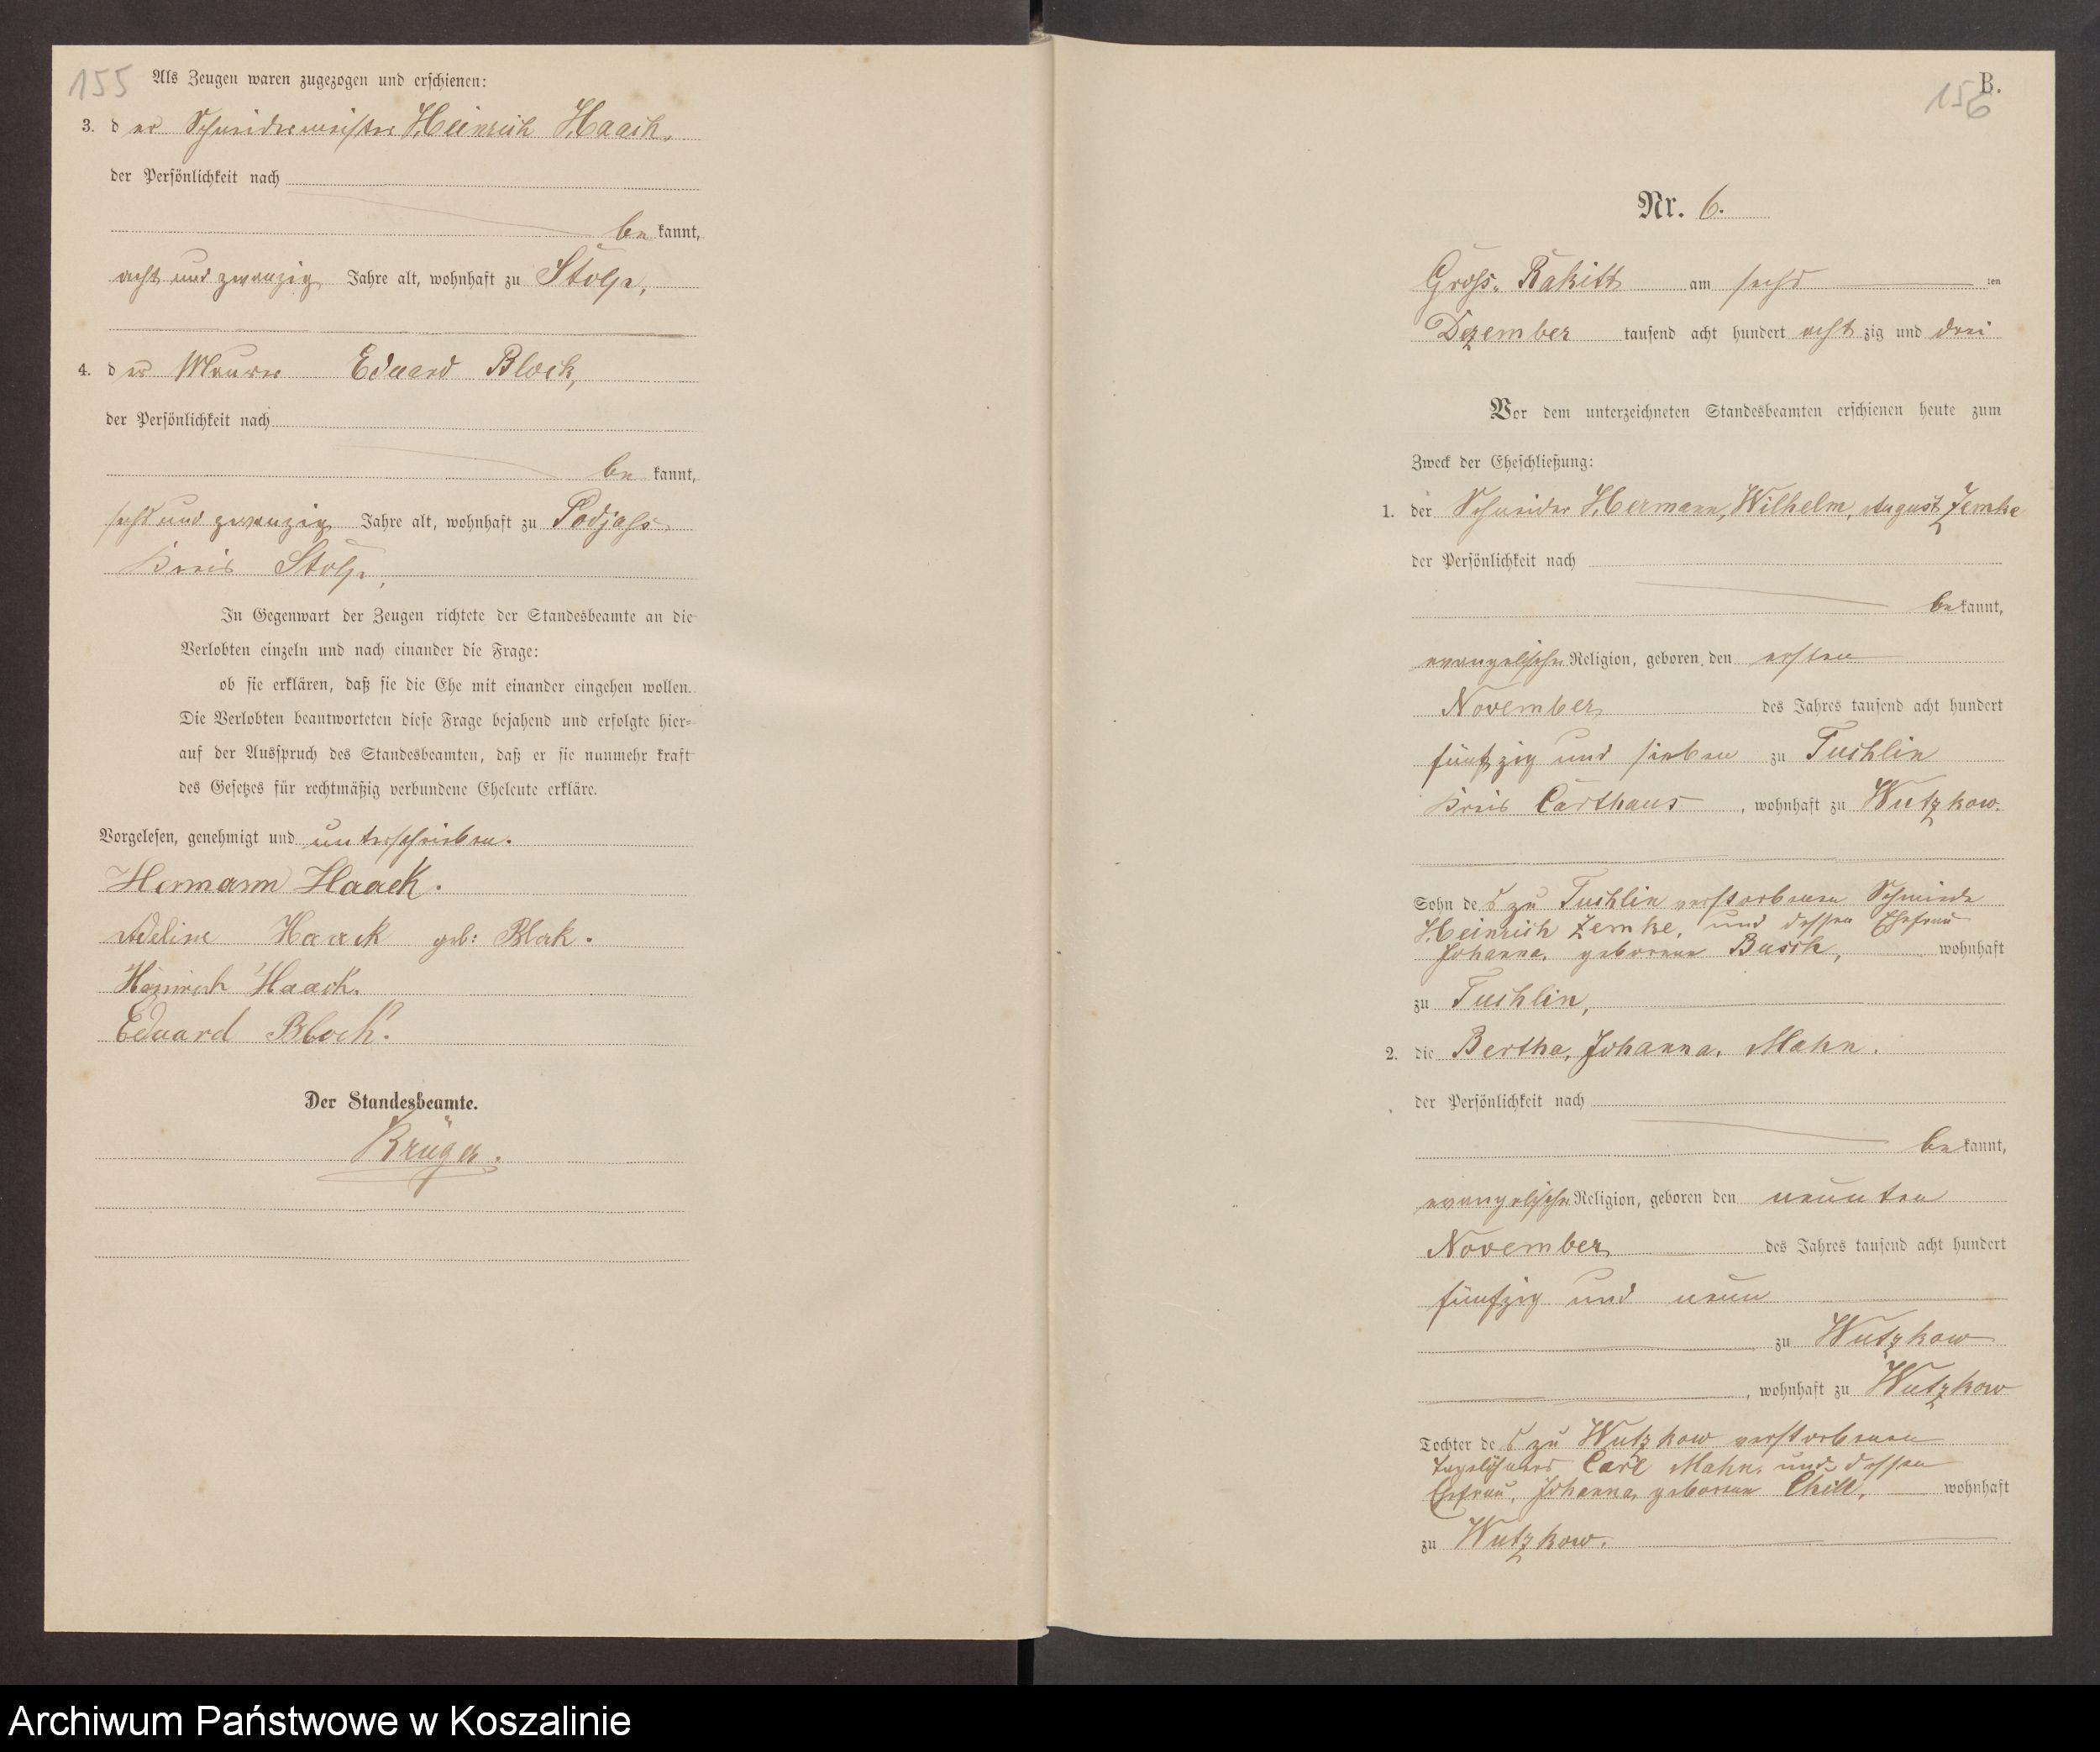 155
Als Zeugen waren zugezogen und erschienen:
3. der Schneidermeister Heinrich Haack,
der Persönlichkeit nach
be kannt,
acht und zwanzig Jahre alt, wohnhaft zu Stolp,
4. der Maurer Eduard Block,
der Persönlichkeit nach
be kannt,
sechs und zwanzig Jahre alt, wohnhaft zu Podjass
Kreis Stolp,
In Gegenwart der Zeugen richtete der Standesbeamte an die
Verlobten einzeln und nach einander die Frage:
ob sie erklären, daß sie die Ehe mit einander eingehen wollen.
Die Verlobten beantworteten diese Frage bejahend und erfolgte hier-
auf der Ausspruch des Standesbeamten, daß er sie nunmehr kraft
des Gesetzes für rechtmäßig verbundene Eheleute erkläre.
Vorgelesen, genehmigt und unterschrieben.
Hermann Haack.
Adeline Haack geb: Blok.
Heinrich Haack.
Eduard Block.
Der Standesbeamte.
Krüger.
B.
156
Nr. 6.
Gross-Rakitt am sechs ten
Dezember tausend acht hundert acht zig und drei
Vor dem unterzeichneten Standesbeamten erschienen heute zum
Zweck der Eheschließung:
1. der Schneider Hermann, Wilhelm, August Zemke
der Persönlichkeit nach
be kannt,
evangelischer Religion, geboren den ersten
November des Jahres tausend acht hundert
fünfzig und sieben zu Tuchlin
Kreis Carthaus, wohnhaft zu Wutzkow.
Sohn des zu Tuchlin verstorbenen Schmieds
Heinrich Zemke, und dessen Ehefrau
Johanna, geborene Busch, wohnhaft
zu Tuchlin,
2. die Bertha, Johanna, Mahn.
der Persönlichkeit nach
be kannt,
evangelischer Religion, geboren den neunten
November des Jahres tausend acht hundert
fünfzig und neun
zu Wutzkow
, wohnhaft zu Wutzkow
Tochter des zu Wutzkow verstorbenen
Tagelöhners Carl Mahn, und dessen
Ehefrau, Johanna, geborene Chill, wohnhaft
zu Wutzkow.
Archiwum Państwowe w Koszalinie